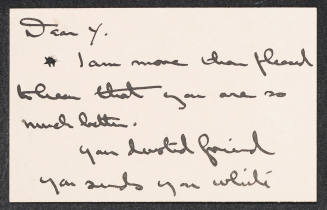 Dear Y.
I am more than pleased
to hear that you are so
much better.
your devoted friend
you sends you white